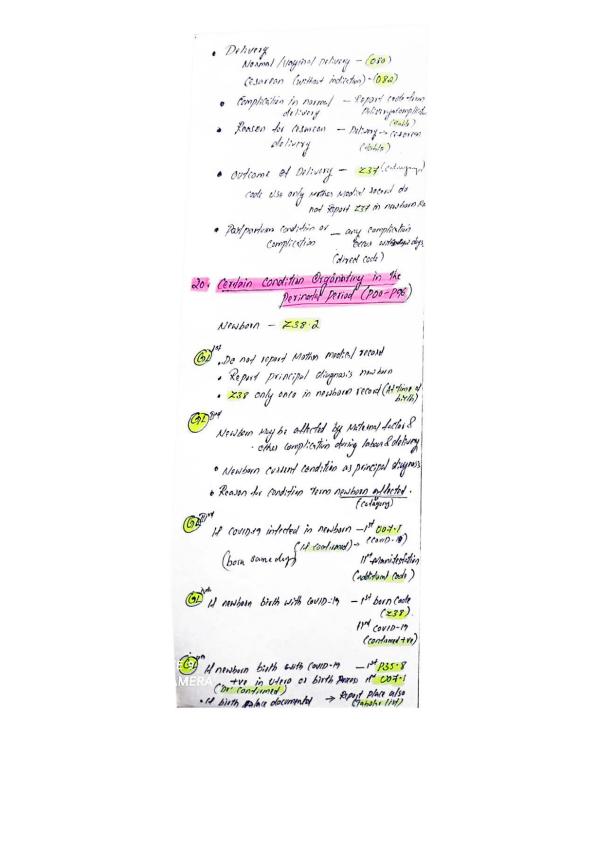 • Delivery
Normal/Vaginal Delivery - (O80)
Cesarean (without indiction) - (O82)
• Complication in normal - Report code from
delivery Delivery complicated
(table)
• Reason for cesarean - Delivery → cesarean
delivery (table)
• Outcome of Delivery - Z37 (category)
Code use only Mother Medical record do
not Report Z37 in newborn
• Postpartum condition or - any complication
complication occur days
(direct code)
20. Certain Condition Orginating in the
Perinatal Period (P00-P96)
Newborn - Z38.2
GL 1st • Do not report Mother medical record
• Report principal diagnosis newborn
• Z38 only once in newborn record (At time of
birth)
GL 2nd
Newborn May be affected by Maternal factor &
other complication during labour & delivery
• Newborn current condition as principal diagnosis
• Reason for condition Term newborn affected.
(category)
GL If covid-19 infected in newborn - 1st U07.1
(If confirmed) → (covid-19)
(born same day) IInd Manifestation
(additional code)
GL If newborn birth with covid-19 - 1st born code
(Z38).
IInd covid-19
(confirmed +ve)
GL If newborn birth with covid-19 - 1st P35.8
+ve in utero or birth U07.1
(Dr confirmed)
MERA
• If birth place documented → Report place also
(Tabular list)